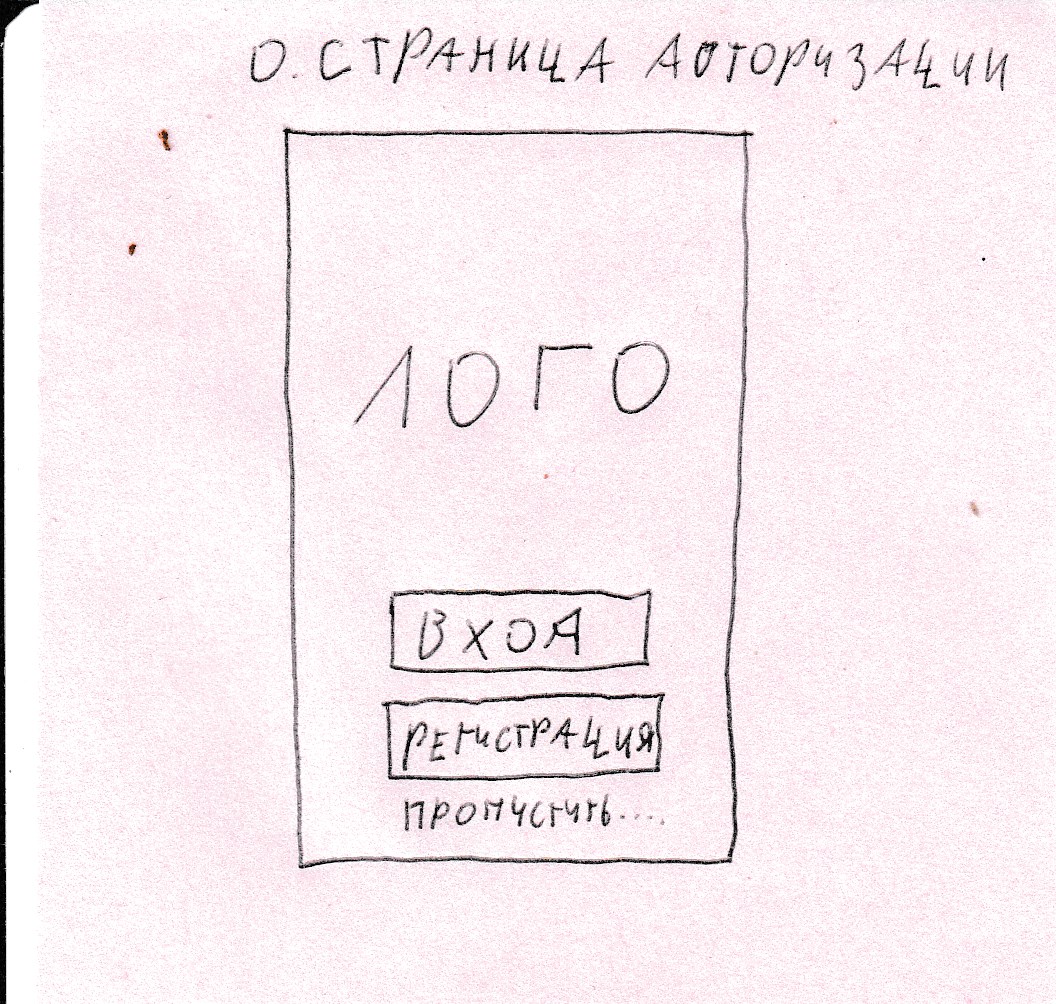 0. СТРАНИЦА АВТОРИЗАЦИИ
ЛОГО
ВХОД
РЕГИСТРАЦИЯ
ПРОПУСТИТЬ....